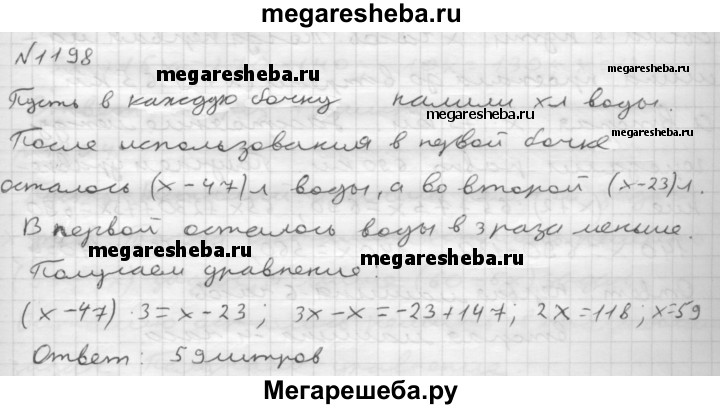 megaresheba.ru
№1198
megaresheba.ru
Пусть в каждую бочку налили x л воды.
megaresheba.ru
После использования в первой бочке
megaresheba.ru
осталось (x-47) л воды, а во второй (x-23) л.
В первой осталось воды в 3 раза меньше.
megaresheba.ru
megaresheba.ru
Получаем уравнение:
(x-47)·3=x-23; 3x-x=-23+147; 2x=118; x=59
Ответ: 59 литров
Мегарешеба.ру